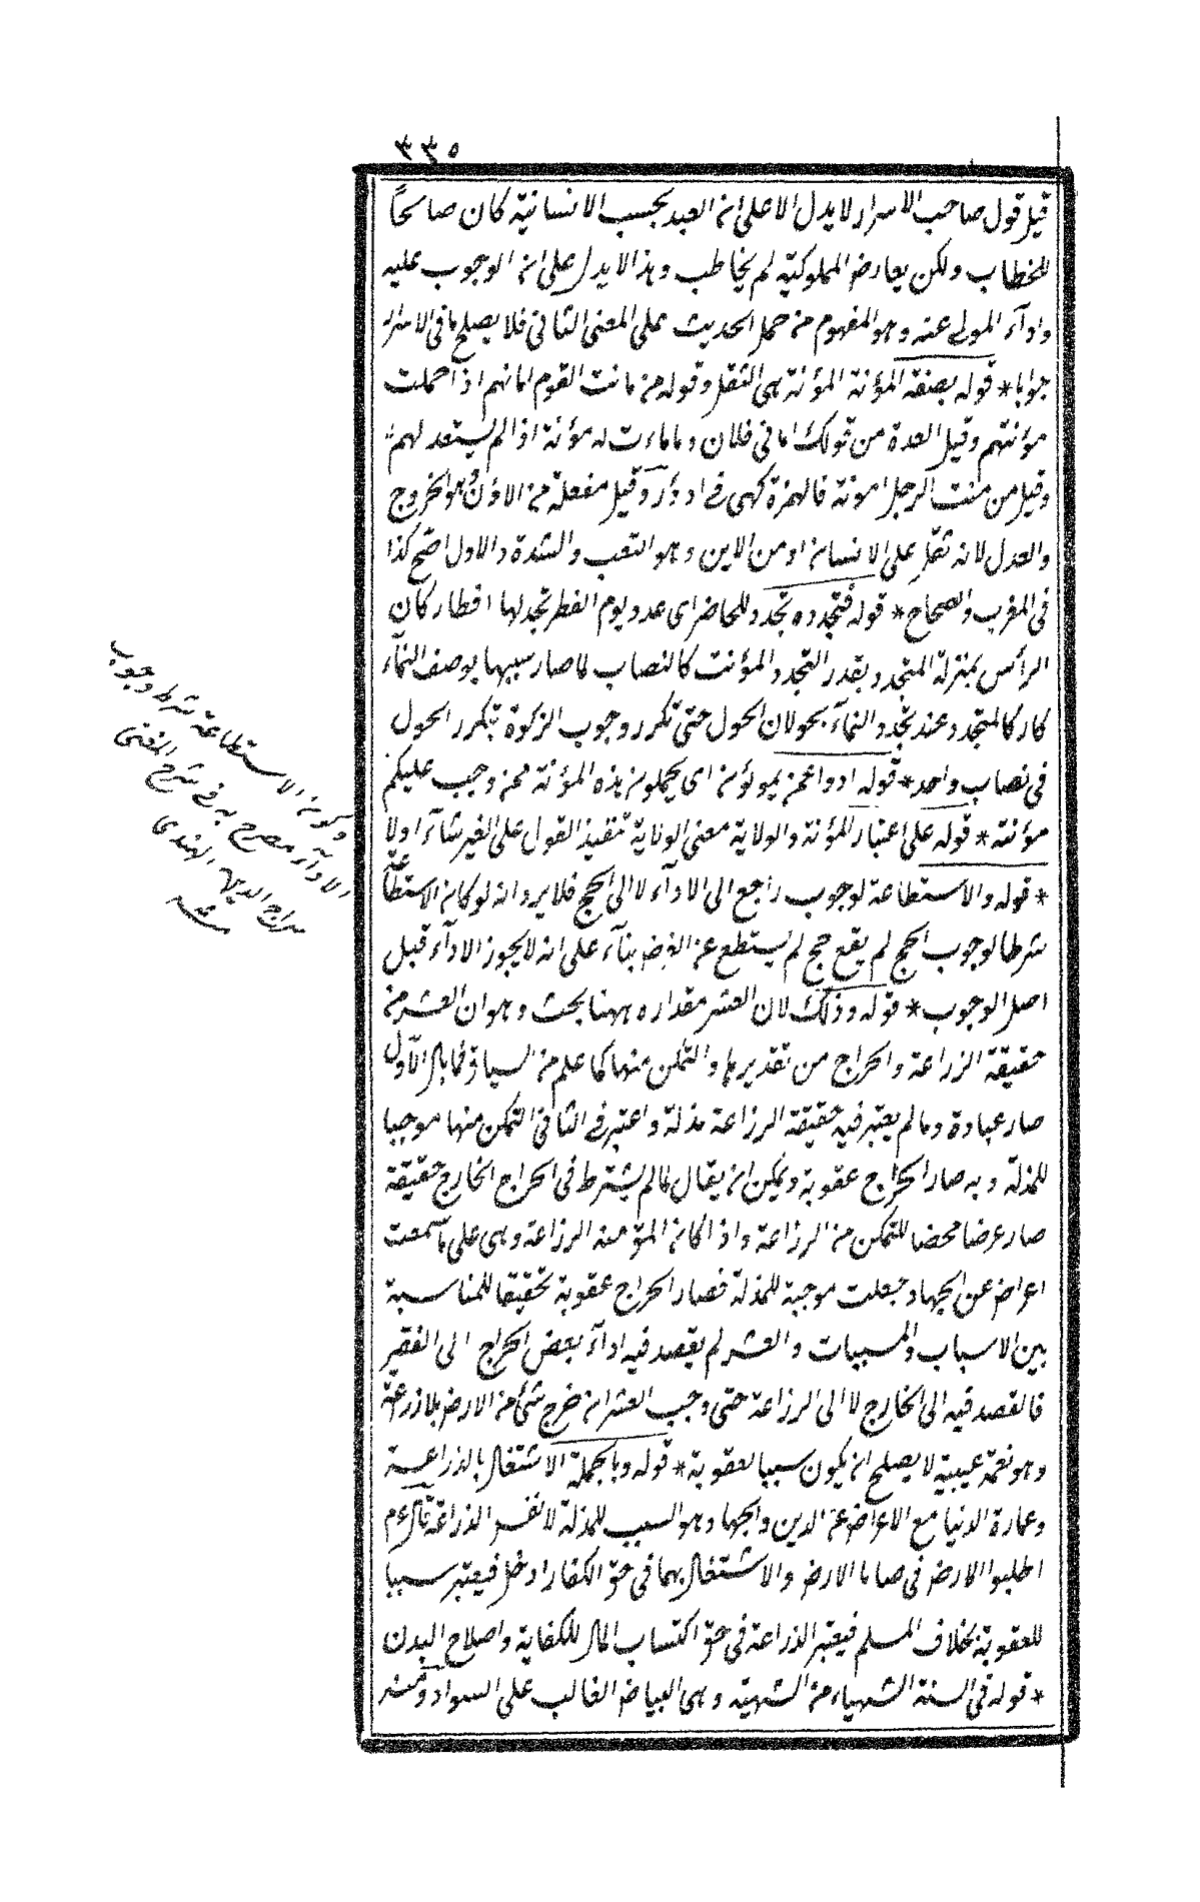 ٣٣٥
قيل قول صاحب الاسرار لا يدل الا على ان العبد بحسب الانسانية كان صالحًا
للخطاب ولكن يعارض المملوكية لم يخاطب وهذا لا يدل على ان الوجوب عليه
واداء المولى عنه وهو المفهوم من حمل الحديث على المعنى الثانى فلا يصلح ما فى الاسرار
جوابا * قوله بصفة المؤنة المؤنة هى الثقل وقوله من مانت القوم امانهم اذا حملت
مؤنتهم وقيل العدة من قولك اما فى فلان وما مانت له مؤنة اذا لم يستعد لهم
وقيل من منت الرجل امونه فالهمزة كهى فى ادؤر وقيل مفعلة من الاون وهو الخروج
والعدل لانه ثقل على الانسان او من الاين وهو التعب والشدة والاول اصح كذا
فى المغرب والصحاح * قوله فتجدده تجدد للحاضر اى عدد يوم الفطر تجدلها افطار كان
الرأس بمنزلة المتجدد بقدر التجدد المؤنت كالنصاب لما صار سببها بوصف النماء
كار كالمتجدد عند تجدد النماء بحولان الحول حتى تكرر وجوب الزكوة بتكرر الحول
فى نصاب واحد * قوله ادوا عمن يموتؤن اى يحملون هذه المؤنة عمن وجب عليكم
مؤنته * قوله على اعتبار المؤنة والولاية معنى الولاية تنفيذ القول على الغير شاء او لا
* قوله والاستطاعة لوجوب راجع الى الاداء لا الى الحج فلا يرد انه لو كان الاستطاعة
شرطا لوجوب الحج لم يقع حج لم يستطع عن الفرض بناء على انه لا يجوز الاداء قبل
اصل الوجوب * قوله وذلك لان العشر مقداره ههنا بحث وهو ان العشر من
حقيقة الزراعة والخراج من تقديرها والتمكن منها كما علم من السياق فما بال الاول
صار عبادة وما لم يعتبر فيه حقيقة الزراعة مذلة واعتبر فى الثانى التمكن منها موجبا
للمذلة وبه صار الخراج عقوبة ويمكن ان يقال لما لم يشترط فى الخراج الخارج حقيقة
صار عرضا محضا للتمكن من الرزاعة واذا كان المؤمنه الرزاعة وهى على ما سمعت
اعراض عن الجهاد جعلت موجبة للمذلة فصار الخراج عقوبة تحقيقا للمناسبة
بين الاسباب والمسببات والعشر لم يقصد فيه اداء بعض الخراج الى الفقير
فالقصد فيه الى الخارج لا الى الرزاعة حتى وجب العشر ان خرج شئ من الارض بلا زراعة
وهو نعمة غيبية لا يصلح ان يكون سببا لعقوبة * قوله وبالجملة الاشتغال بالذراعة
وعمارة الدنيا مع الاعراض عن الدين والجهاد وهو السبب للمذلة لا نفس الذراعة قال ءم
اطلبوا الارض فى صايا الارض والاشتغال بهما فى حق الكفار ادخل فيعتبر سببا
للعقوبة بخلاف المسلم فيعتبر الذراعة فى حق اكتساب المال للكفاية واصلاح البدن
* قوله فى السنة الشهباء من الشهبة وهى البياض الغالب على السواد ومنه
وكون الاستطاعة شرط وجوب
الاداء مصرح به فى شرح المغنى
سراج الدين الهندى
منه